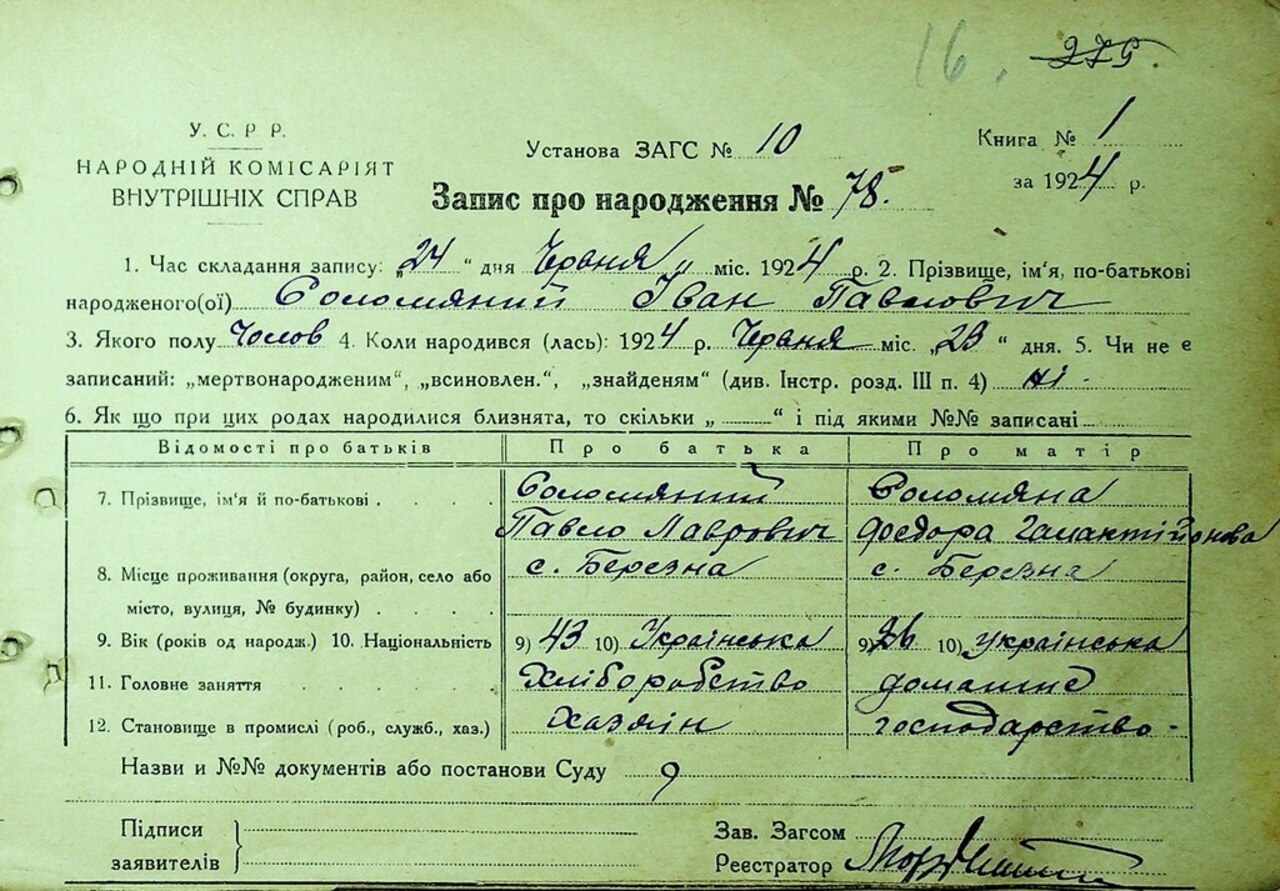 16. 275.
У. С. Р Р.
НАРОДНІЙ КОМІСАРІЯТ
ВНУТРІШНІХ СПРАВ
Установа ЗАГС № 10
Книга № 1
за 1924 р.
Запис про народження № 78.
1. Час складання запису: „24 “ дня Червня „ міс. 1924 р. 2. Прізвище, ім'я, по-батькові
народженого(ої) Соломяний Іван Павлович
3. Якого полу Чолов 4. Коли народився (лась): 1924 р. Червня міс. „23 “ дня. 5. Чи не є
записаний: „мертвонародженим“, „всиновлен.“, „знайденям“ (див. Інстр. розд. III п. 4) ні.
6. Як що при цих родах народилися близнята, то скільки „ “ і під якими №№ записані
Відомості про батьків Про батька Про матір
7. Прізвище, ім'я й по-батькові . . . . Соломяний Соломяна
Павло Лаврович Федора Галактійонова
8. Місце проживання (округа, район, село або с. Березна с. Березна
місто, вулиця, № будинку) . . . .
9. Вік (років од народж.) 10. Національність 9) 43 10) Українська 9) 36 10) українська
11. Головне заняття . . . . . . Хліборобство домашнє
12. Становище в промислі (роб., служб., хаз.) Хазяін господарство.
Назви и №№ документів або постанови Суду 9
Підписи
заявителів
Зав. Загсом
Реєстратор